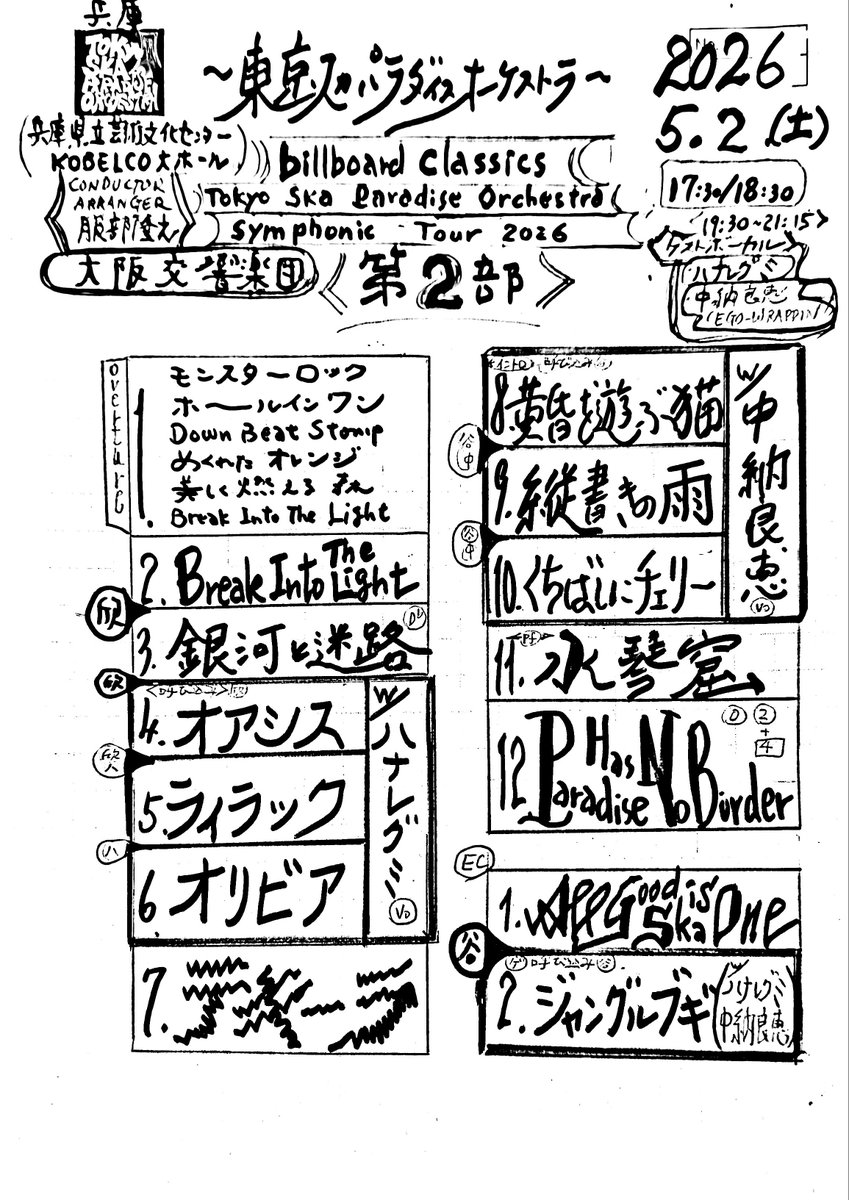 兵庫
TOKYO
SKA
PARADISE
ORCHESTRA
〜東京スカパラダイスオーケストラ〜
2026
5.2.(土)
(兵庫県立芸術文化センター
KOBELCO大ホール)
CONDUCTOR
ARRANGER
服部隆之
大阪交響楽団
billboard classics
Tokyo Ska Paradise Orchestra
Symphonic Tour 2026
《第2部》
17:30/18:30
19:30~21:15
<ゲストボーカル>
ハナレグミ
中納良恵
(EGO-WRAPPIN')
overture
1.
モンスターロック
ホールインワン
Down Beat Stomp
めくれたオレンジ
美しく燃える森
Break Into The Light
2. Break Into The Light
欣
3. 銀河と迷路
Dr
<呼び込み>
4. オアシス
5. ライラック
ハ
6. オリビア
w/ハナレグミ
Vo
7.
呼び込み
8. 黄昏を遊ぶ猫
谷中
9. 縦書きの雨
谷中
10. くちばしにチェリー
w/中納良恵
Vo
11. 水琴窟
12. Paradise Has No Border
D 2
+
4
EC
1. All Good Ska is One
谷
ゲ 呼び込み 谷
2. ジャングルブギ
(w/ハナレグミ
中納良恵)